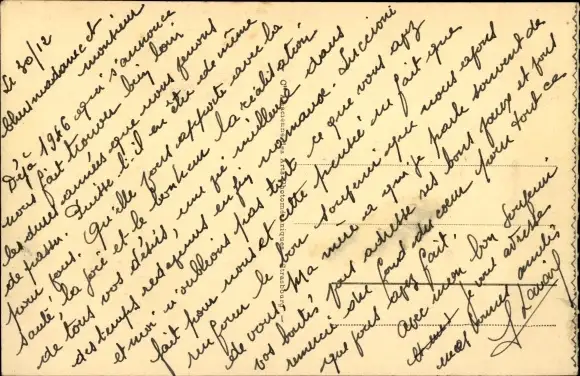 Le 30/12
Chers madame et
monsieur
Déjà 1946 qui s'annonce
nous fait trouver bien loin
les dures années que nous venons
de passer. Puisse-t-il en être de même
pour vous. Qu'elle vous apporte avec la
santé, la joie et le bonheur la réalisation
de tous vos désirs, une vie meilleure dans
des temps redevenus enfin normaux. Suzanne
et moi n'oublions pas tout ce que vous avez
fait pour nous et cette pensée ne fait que
renforcer le bon souvenir que nous avons
de vous. Ma mère a qui je parle souvent de
vos bontés vous adresse ses bons vœux et vous
remercie du fond du cœur pour tout ce
que vous avez fait.
Avec mon bon souvenir
je vous adresse
mes bonnes amitiés